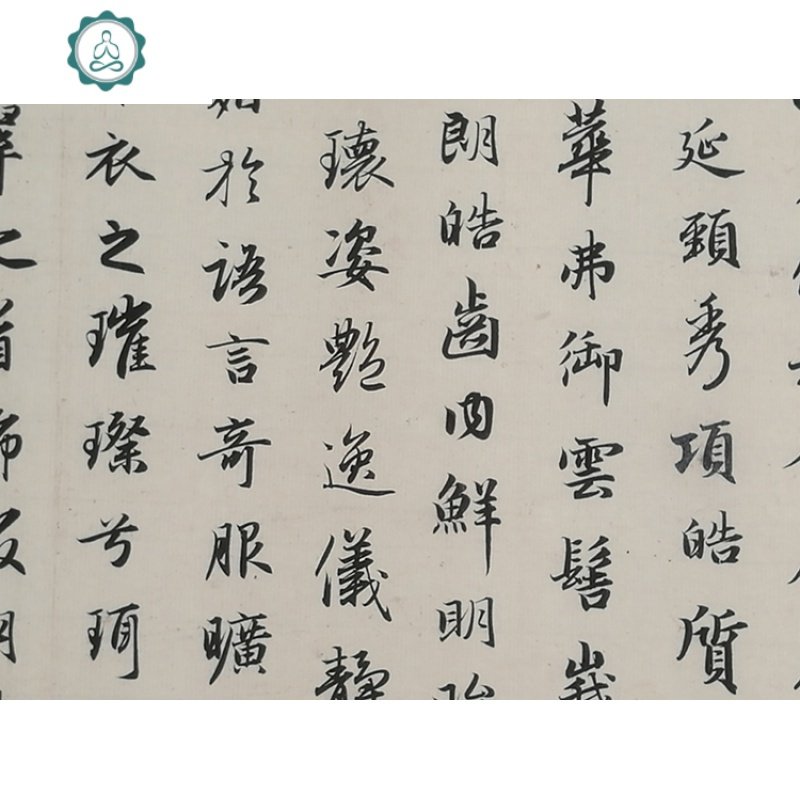 延頸秀項皓質
華弗御雲髻峩
朗皓齒内鮮明
瓌姿艶逸儀靜
於語言奇服曠
衣之璀璨兮珥